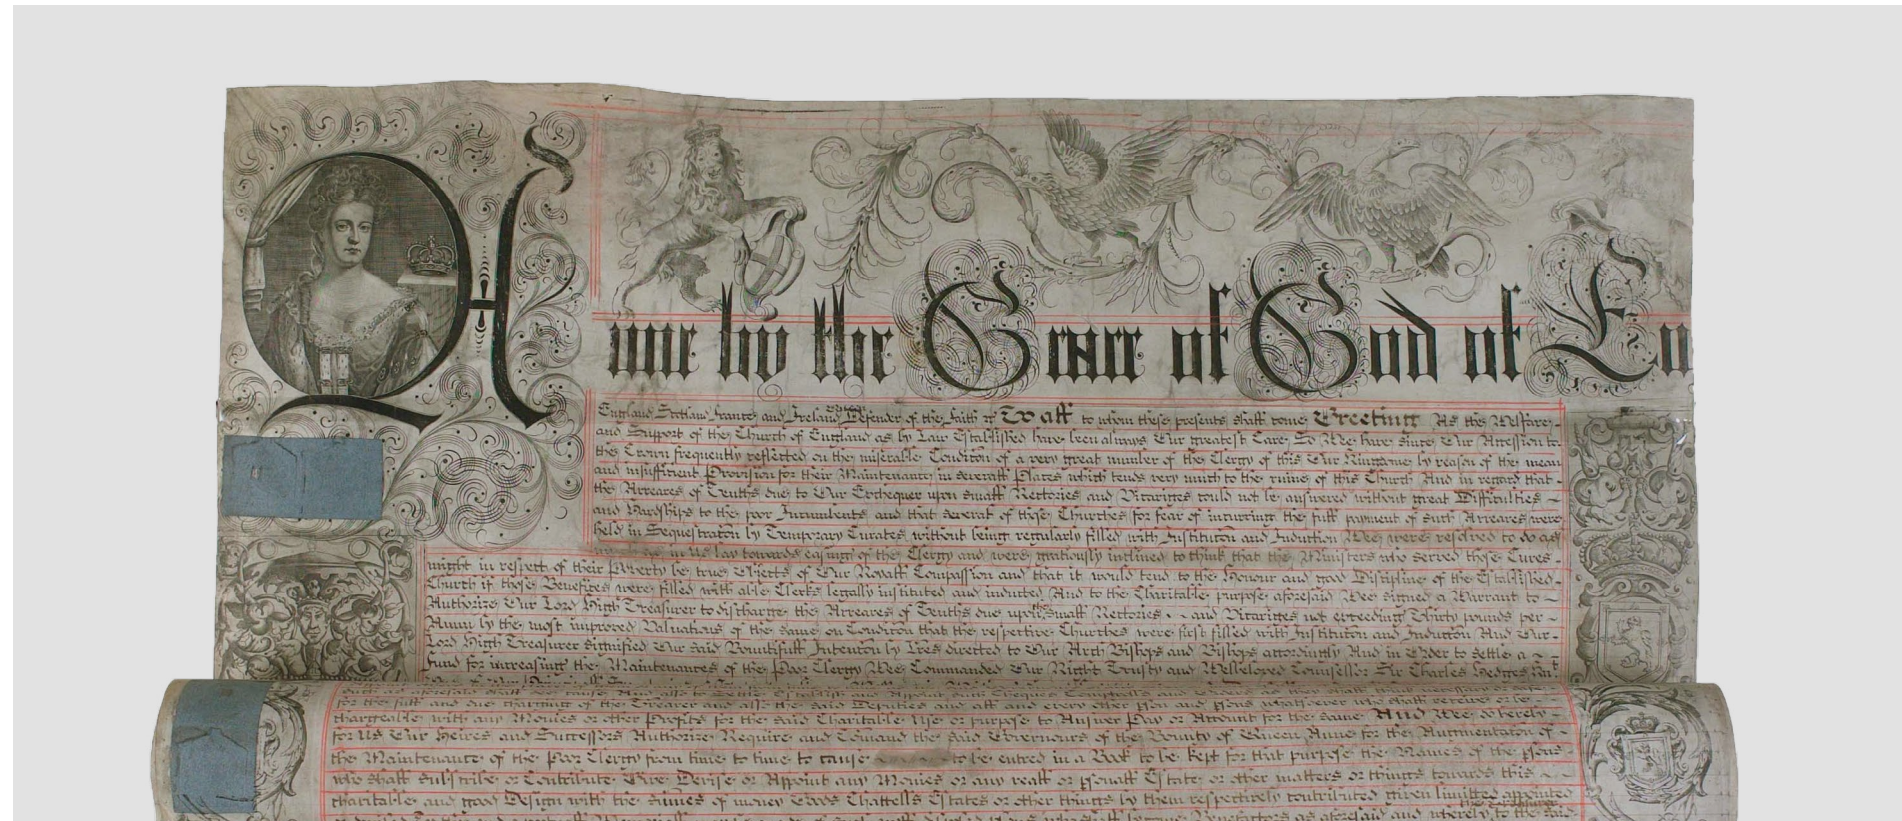 Anne by the Grace of God of En
England Scotland France and Ireland Defender of the Faith &c To all to whom these presents shall come Greeting As the Welfare
and Support of the Church of England as by Law Established have been always Our greatest Care So Wee have since Our Accession to
the Crown frequently reflected on the miserable Condicon of a very great number of the Clergy of this Our Kingdome by reason of the mean
and insufficient Provision for their Maintenance in severall Places which tends very much to the ruine of this Church And in regard that
the Arreares of Tenths due to Our Exchequer upon small Rectories and Vicariges could not be answered without great Difficulties
and Hardships to the poor Incumbents and that several of those Churches for fear of incurring the full payment of such Arreares were
held in Sequestracon by Temporary Curates without being regularly filled with Institucon and Induction Wee were resolved to do as
in Us lay towards easing of the Clergy and were graciously inclined to think that the Ministers who served those Cures
might in respect of their Poverty be true Objects of Our Royall Compassion and that it would tend to the Honour and good Discipline of the Established
Church if those Benefices were filled with able Clerks legally instituted and inducted And to the Charitable purpose aforesaid Wee signed a Warrant to
Authorize Our Lord High Treasurer to discharge the Arreares of Tenths due upon the small Rectories and Vicariges not exceeding Thirty pounds per
Annum by the most improved Valuations of the same on Condicon that the respective Churches were first filled with Institucon and Induccon And Our
Lord High Treasurer signified Our said Bountifull Intencon by Lres directed to Our Arch Bishops and Bishops accordingly And in Order to settle a
Fund for increasing the Maintenances of the Poor Clergy Wee Commanded Our Right Trusty and Welbeloved Counsellor Sir Charles Hedges
such as aforesaid shall
for the full and due charging of the Treasurer and all the said Deputies and all and every other pson and psons whatsoever who shall receive or be
chargeable with any Monies or other Profits for the said Charitable Use or purpose to Answer Pay or Account for the same And Wee do hereby
for Us Our Heires and Successors Authorize Require and Comand the said Governours of the Bounty of Queen Anne for the Augmentacon of
the Maintenance of the Poor Clergy from time to time to cause to be entred in a Book to be kept for that purpose the Names of the psons
who shall Subscribe or Contribute Give Devise or Appoint any Monies or any reall or psonall Estate or other matters or things towards this
charitable and good Design with the summes of money Goods Chattells Estates or other things by them respectively contributed given limitted appointed